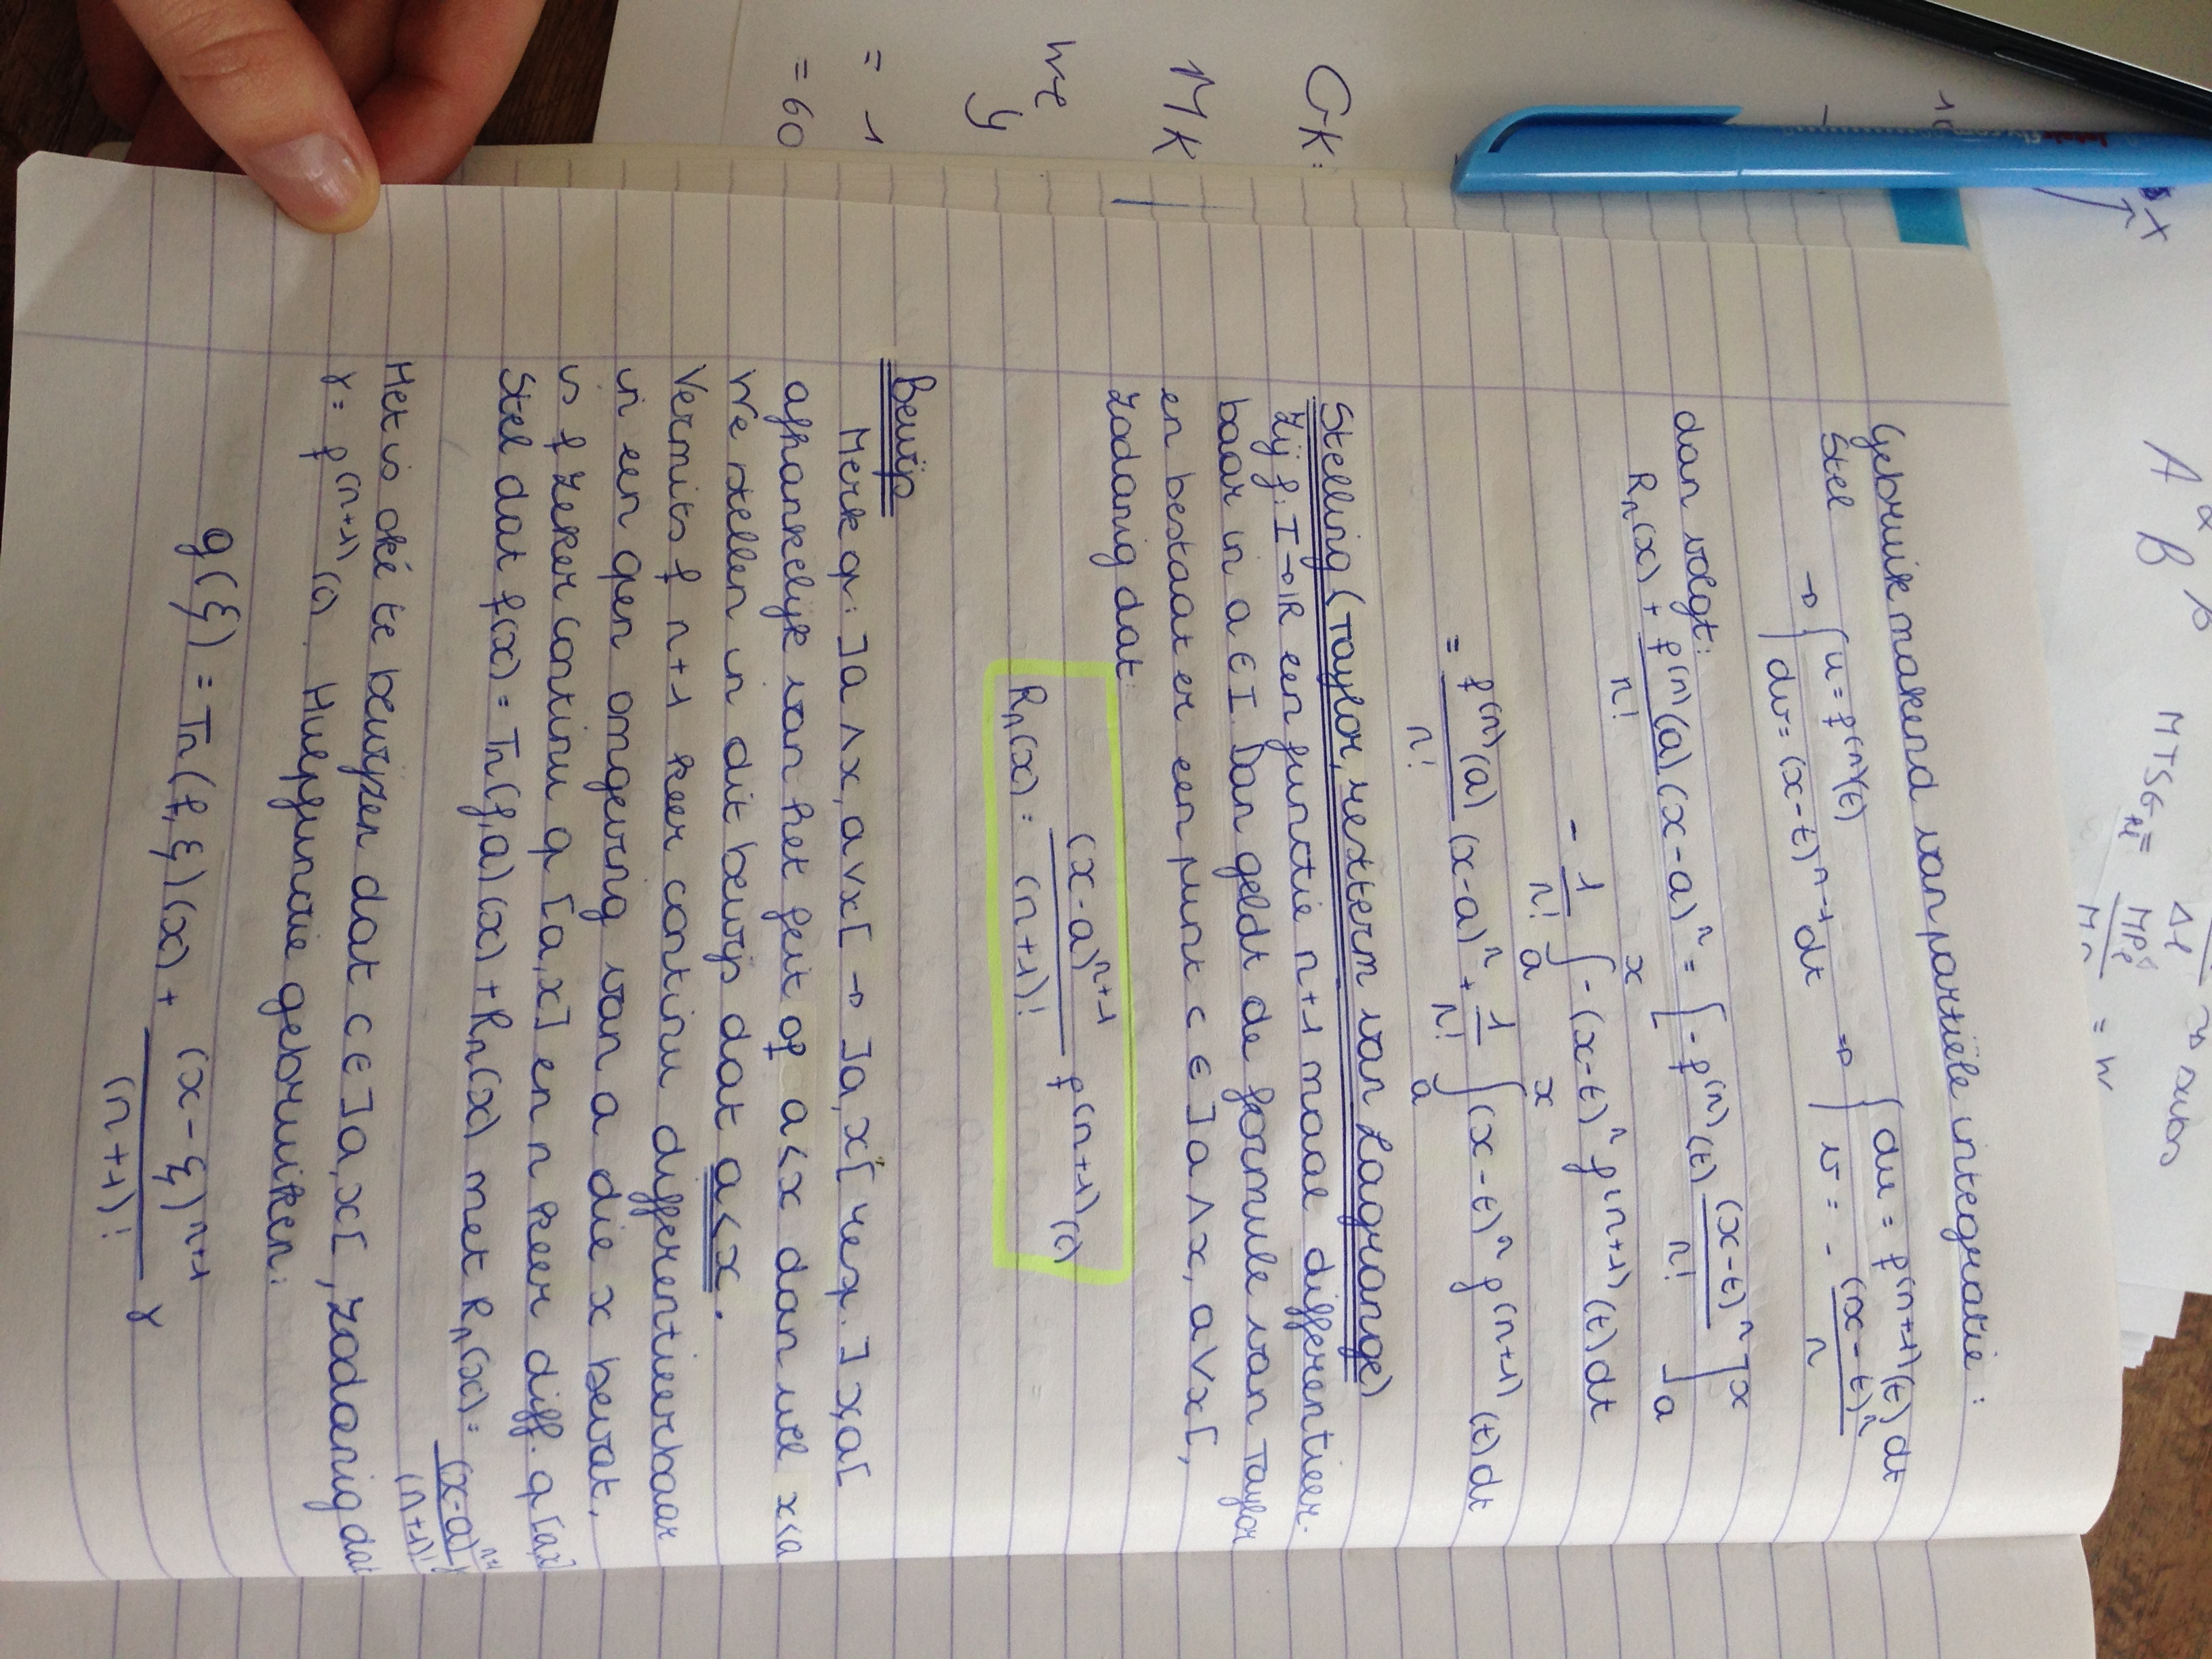 x
A^α B^β
Δl → subs
MTSG_kl = MPl / M = W
Gebruik makend van partiële integratie :
Stel → { u = f^(n)(t) ⇒ { du = f^(n+1)(t) dt
dv = (x-t)^n-1 dt v = - (x-t)^n / n
dan volgt:
Rn(x) + f^(n)(a)/n! (x-a)^n = [ - f^(n)(t) (x-t)^n / n! ]_a^x
- 1/n! ∫_a^x -(x-t)^n f^(n+1)(t) dt
= f^(n)(a)/n! (x-a)^n + 1/n! ∫_a^x (x-t)^n f^(n+1)(t) dt
Stelling (Taylor, restterm van Lagrange)
Zij f: I → ℝ een functie n+1 maal differentieer-
baar in a ∈ I. Dan geldt de formule van Taylor
en bestaat er een punt c ∈ ]a ∧ x, a ∨ x[,
zodanig dat
Rn(x) = (x-a)^n+1 / (n+1)! f^(n+1)(c)
Bewijs
Merk op: ]a ∧ x, a ∨ x[ → ]a, x[ resp. ]x,a[
afhankelijk van het feit of a < x dan wel x<a
We stellen in dit bewijs dat a < x.
Vermits f n+1 keer continu differentieerbaar
in een open omgeving van a die x bevat,
is f zeker continu op [a,x] en n keer diff. op [a,x]
Stel dat f(x) = Tn(f,a)(x) + Rn(x) met Rn(x) = (x-a)^n+1 / (n+1)! γ
Het is oké te bewijzen dat c ∈ ]a, x[ , zodanig dat
γ = f^(n+1)(c). Hulpfunctie gebruiken:
g(ξ) = Tn(f,ξ)(x) + (x-ξ)^n+1 / (n+1)! γ
GK:
MK
We
y
= 1
= 60